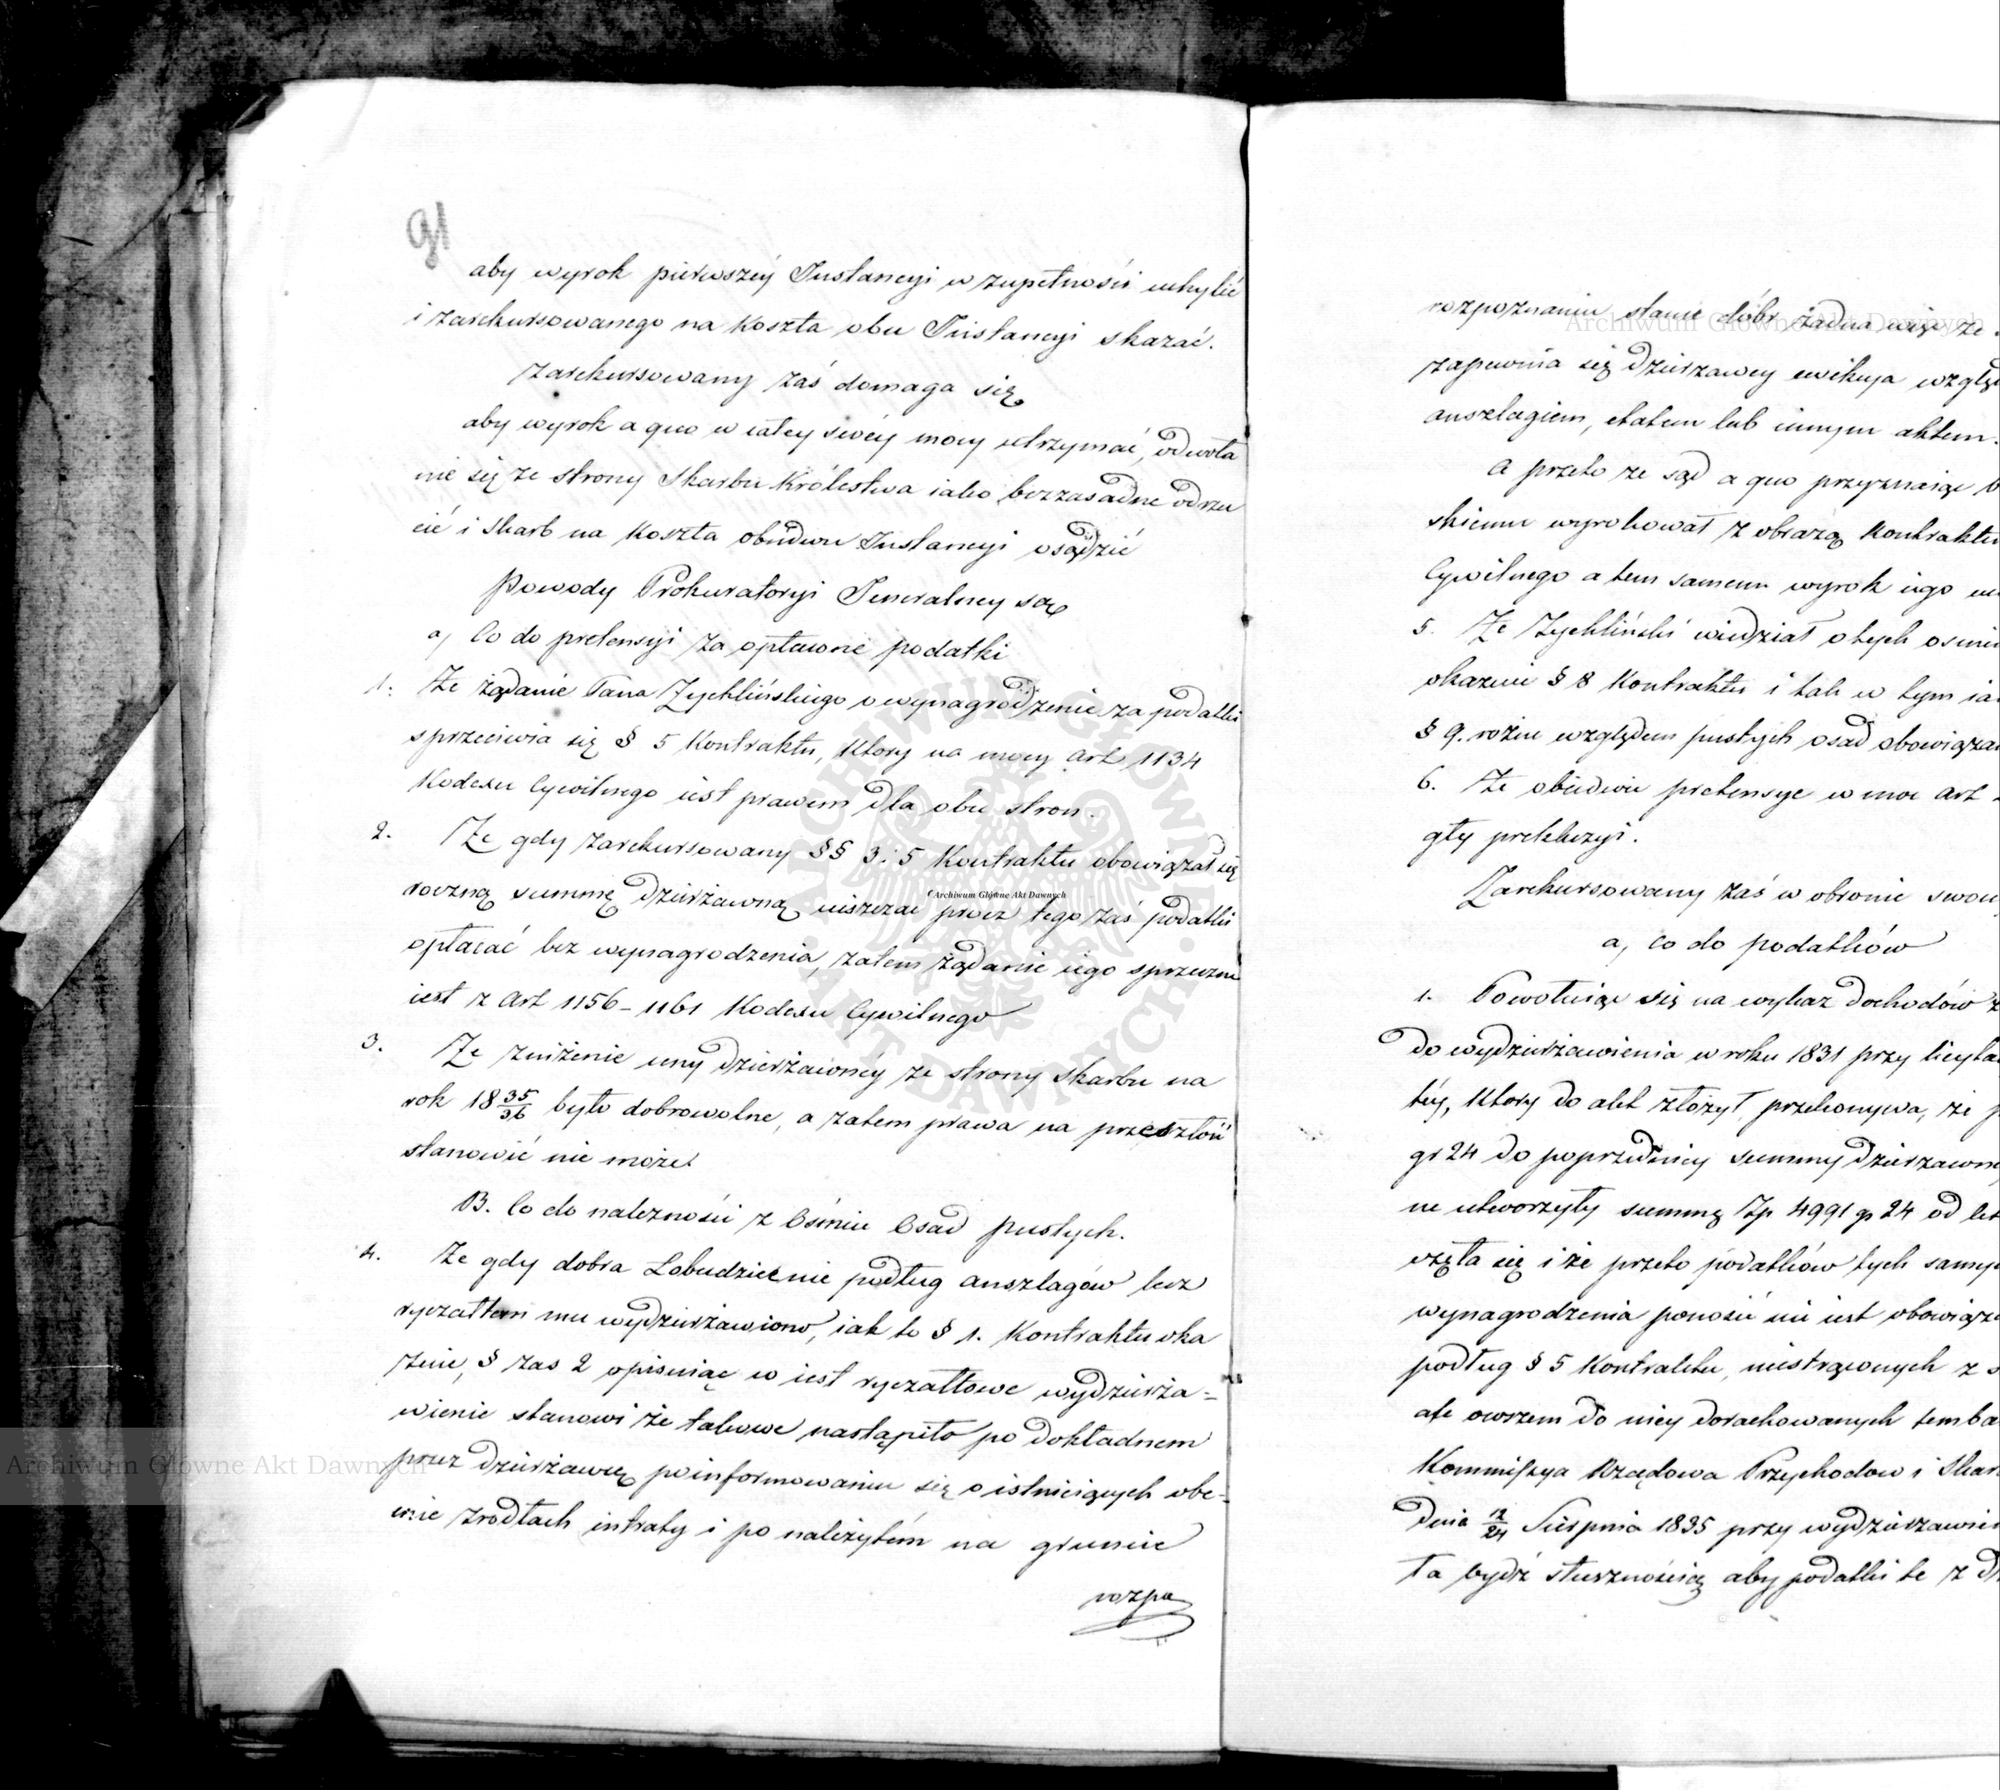 91
aby wyrok pierwszéy Instancyi w zupełności uchylić
i zarekursowanego na koszta obu Instancyi skazać.
Zarekursowany zaś domaga się
aby wyrok a quo w całey swéy mocy utrzymać, odwoła
nie się ze strony Skarbu Królestwa iako bezzasadne odrzu
cić i Skarb na koszta obudwu Instancyi osądzić
Powody Prokuratoryi Jeneralney są
a, Co do pretensyi za opłacone podatki
1. Że żądanie Pana Zychlińskiego o wynagrodzenie za podatki
sprzeciwia się § 5 Kontraktu, który na mocy art 1134
Kodexu Cywilnego iest prawem dla obu stron.
2. Że gdy zarekursowany §§ 3 i 5 Kontraktu obowiązał się
roczną summę dzierżawną uiszczać prócz tego zaś podatki
opłacać bez wynagrodzenia, zatem żądanie iego sprzeczne
iest z art 1156 – 1161 Kodexu Cywilnego
3. Że zniżenie ceny dzierżawnéy ze strony skarbu na
rok 18 35/36 było dobrowolne, a zatem prawa na przeszłość
stanowić nie może.
B. Co do należności z Ośmiu Osad pustych.
4. Że gdy dobra Łobudzice nie podług anszlagów lecz
ryczałtem mu wydzierżawiono, iak to § 1. Kontraktu oka
zuie, § zaś 2 opisuiąc w iest ryczałtowe wydzierża-
wienie stanowi że takowe nastąpiło po dokładnem
przez dzierżawcę poinformowaniu się o istnieiących obe-
cnie źrodłach intraty i po należytém na gruncie
rozpo
rozpoznaniu stanie dóbr żadna więc ze
zapewnia się dzierżawcy ewikcya wzglę
anszlagiem, etatem lub innym aktem.
A przeto ze sąd a quo przyznaiąc
skiemu wyrokował z obrazą Kontraktu
Cywilnego a tem samem wyrok iego
5. Że Zychliński wiedział o tych osmiu
okazuie § 8 Kontraktu i tak w tym ia
§ 9. rożne względem pustych osad obowiąza
6. Że obiedwie pretensye w moc art
gły prekluzyi.
Zarekursowany zaś w obronie swoi
a, co do podatków
1. Powołuiąc się na wykaz dochodów z
do wydzierżawienia w roku 1831 przy licyta
téy, który do akt złożył przekonywa, że p
gr 24 do poprzedniey summy dzierzawne
ne utworzyły summę Zp 4991 gr 24 od
częła się i że przeto podatków tych samy
wynagrodzenia ponosić nie iest obowiąza
podług § 5 Kontraktu, niestrąconych z
ale owszem do niey dorachowanych tem ba
Kommissya Rządowa Przychodow i Skar
Dnia 12/24 Sierpnia 1835 przy wydzierzawie
ła bydź słusznością aby podatki te z
Archiwum Główne Akt Dawnych
Archiwum Główne Akt Dawnych
Archiwum Główne Akt Dawnych
ARCHIWUM GŁÓWNE AKT DAWNYCH